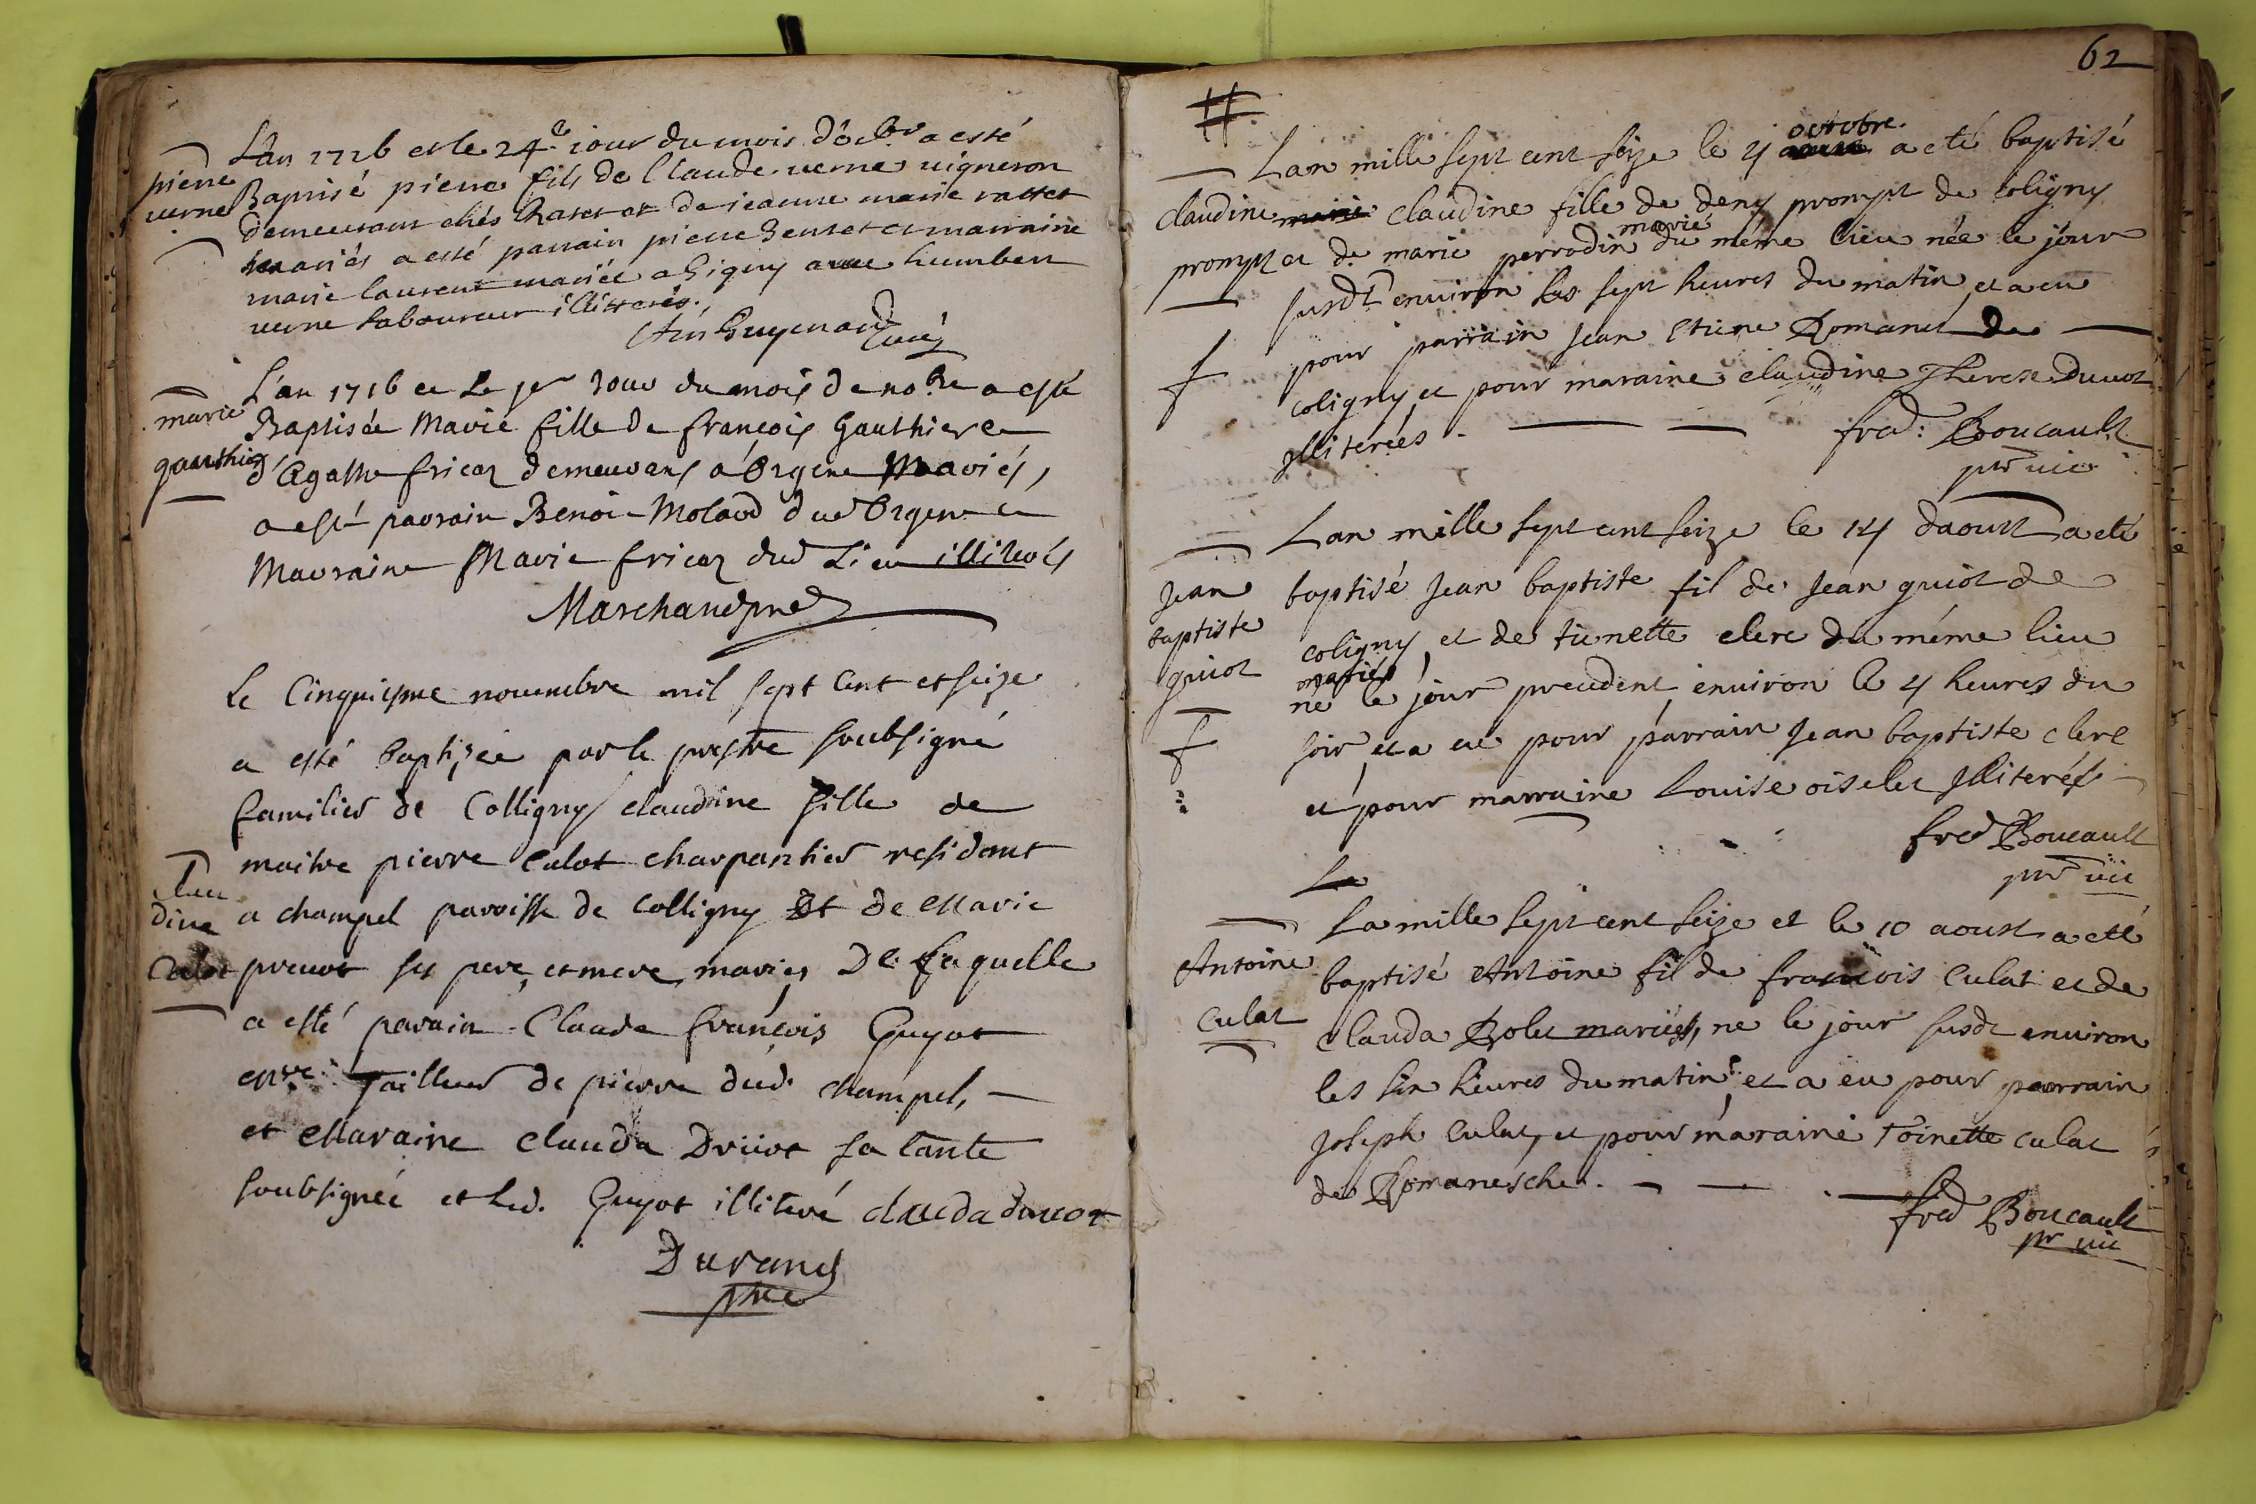 pierre
verne
L'an 1716 et le 24e iour du mois d'8bre a esté
Baptisé pierre fils de Claude verne vigneron
demeurant chés Chatet et de jeanne marie rattet
mariés a esté parrain pierre et marraine
marie laurent mariée a Gigny avec humbert
verne laboureur illitterés.
Guyenard Curé
marie
gauthier
L'an 1716 et Le jer Jour du mois de nobre a esté
Baptisée Marie fille de françois Gauthier et
d'Agathe fricaz demeurans a Orgene Mariés,
a esté parrain Benoi Molard dud Orgene et
Marraine Marie fricaz dud Lieu illiterés
Marchand pre
Clau
dine
Culot
le Cinquiesme nouembre mil sept Cent et seize
a esté baptizée par le prestre soubsigné
familier de Colligny claudine fille de
maitre pierre Culot charpantier residant
a champel paroisse de Colligny Et de Marie
preuot ses pere, et mere mariés De laquelle
a esté parain Claude françois Guyot
tailleur de pierre dud. champel,
et Maraine Clauda Druiot sa tante
soubsignée et led. Guyot illiteré clauda
Durand
pbre
62
Lan mille sept cent seize le 4 octobre a eté baptisé
claudine
prompt
claudine fille de deny prompt de coligny
et de marie perrodin marié du méme lieu née le jour
susdt environ les sept heures du matin et a eu
pour parrain Jean Etiene Romand de
coligny, et pour maraine claudine Therese Duuot
Jlliterées.
fred: Boucault
ptr vic
Lan mille sept cent seize le 14 daoust a eté
Jean
baptiste
guiot
baptisé Jean baptiste fil de Jean guiot de
coligny, et de tienette clerc du méme lieu
mariés
né le jour precedent environ le 4 heures du
soir, et a eu pour parrain Jean baptiste clerc
et pour marraine Louise oiselet Jlliterés
fred Boucault
ptr vic
La
La mille sept cent seize et le 10 aoust a eté
Antoine
culat
baptisé Antoine fil de francois culat et de
clauda Bolet mariés, né le jour susdt environ
les sin heures du matin, et a eu pour parrain
Joseph culat, et pour maraine Toinette culat
de Romanesche.
fred Boucault
ptr vic